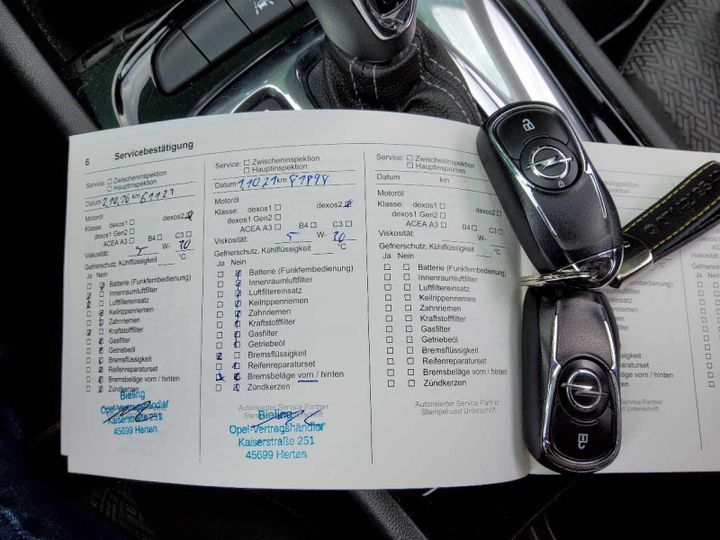 6 Servicebestätigung
Service: ☐ Zwischeninspektion
☐ Hauptinspektion
Datum km 61127
Motoröl
Klasse: dexos1 ☐ dexos2
dexos1 Gen2 ☐
ACEA A3 ☐ B4 ☐ C3 ☐
Viskosität: 5 W- 30
Gefrierschutz, Kühlflüssigkeit °C
Ja Nein
Batterie (Funkfernbedienung)
Innenraumluftfilter
Luftfiltereinsatz
Keilrippenriemen
Zahnriemen
Kraftstofffilter
Gasfilter
Getriebeöl
Bremsflüssigkeit
Reifenreparaturset
Bremsbeläge vorn / hinten
Zündkerzen
Bieling
Opel-Vertragshändler
Kaiserstraße 251
45699 Herten
Service: ☐ Zwischeninspektion
☐ Hauptinspektion
Datum 1.10.21 km 81898
Motoröl
Klasse: dexos1 ☐ dexos2
dexos1 Gen2 ☐
ACEA A3 ☐ B4 ☐ C3 ☐
Viskosität: 5 W- 30
Gefrierschutz, Kühlflüssigkeit °C
Ja Nein
Batterie (Funkfernbedienung)
Innenraumluftfilter
Luftfiltereinsatz
Keilrippenriemen
Zahnriemen
Kraftstofffilter
Gasfilter
Getriebeöl
Bremsflüssigkeit
Reifenreparaturset
Bremsbeläge vorn / hinten
Zündkerzen
Autorisierter Service Partner
Bieling
Opel-Vertragshändler
Kaiserstraße 251
45699 Herten
Service: ☐ Zwischeninspektion
☐ Hauptinspektion
Datum km
Motoröl
Klasse: dexos1 ☐ dexos2 ☐
dexos1 Gen2 ☐
ACEA A3 ☐ B4 ☐ C3 ☐
Viskosität: W-
Gefrierschutz, Kühlflüssigkeit °C
Ja Nein
☐ ☐ Batterie (Funkfernbedienung)
☐ ☐ Innenraumluftfilter
☐ ☐ Luftfiltereinsatz
☐ ☐ Keilrippenriemen
☐ ☐ Zahnriemen
☐ ☐ Kraftstofffilter
☐ ☐ Gasfilter
☐ ☐ Getriebeöl
☐ ☐ Bremsflüssigkeit
☐ ☐ Reifenreparaturset
☐ ☐ Bremsbeläge vorn / hinten
☐ ☐ Zündkerzen
Autorisierter Service Partner
Stempel und Unterschrift